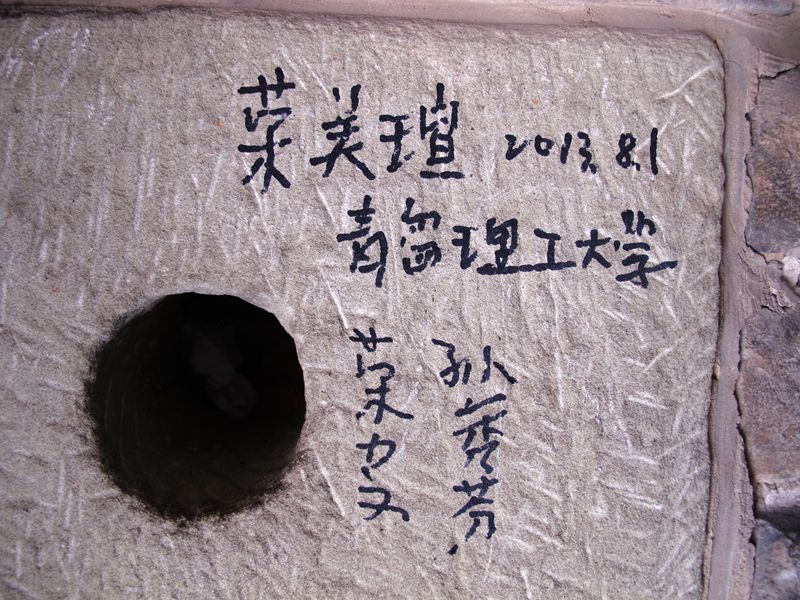 荣美瑄 2013.8.1
青岛理工大学
荣力文
孙秀芬